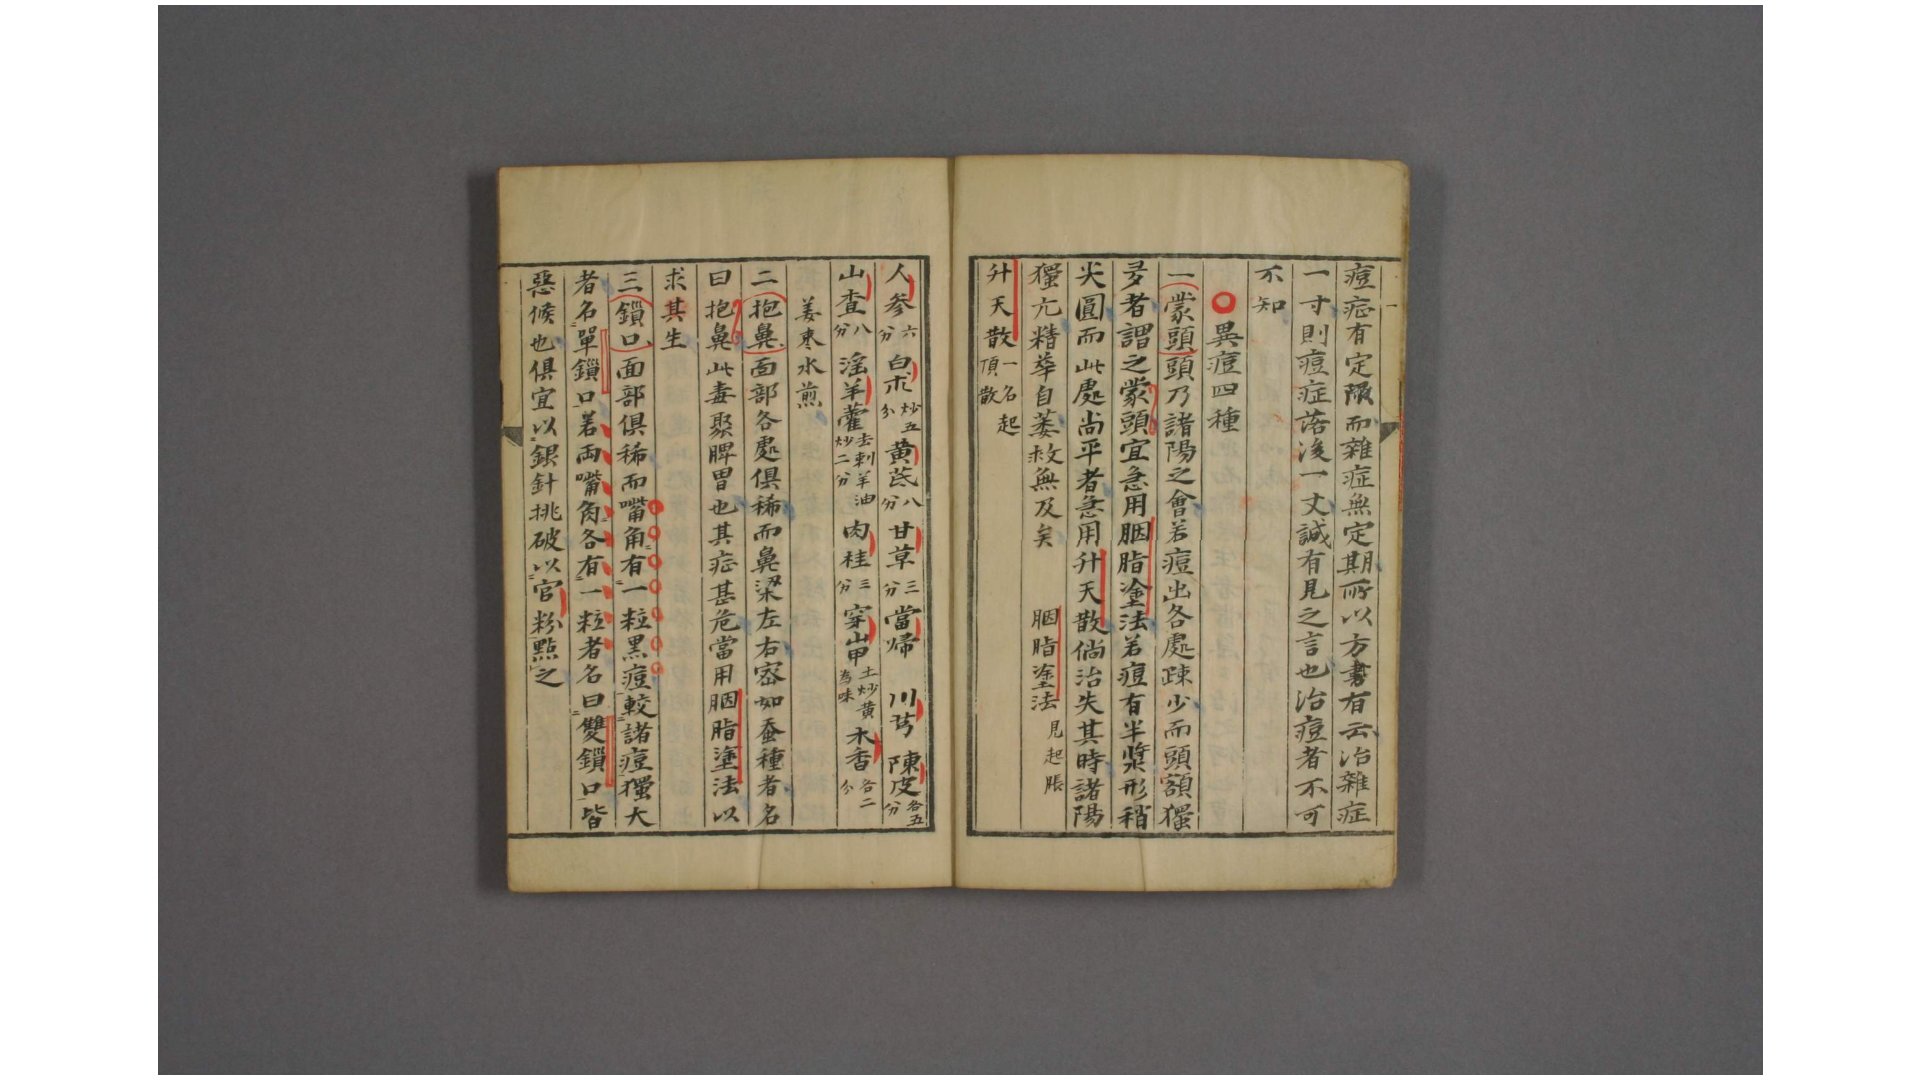 痘症有定限而雜症無定期所以方書有云治雜症
一寸則痘症落後一丈誠有見之言也治痘者不可
不知
異痘四種
一蒙頭頭乃諸陽之會若痘出各處疎少而頭額獨
多者謂之蒙頭宜急用胭脂塗法若痘有半漿形稍
尖圓而此處尚平者急用升天散倘治失其時諸陽
獨亢精華自萎救無及矣 胭脂塗法見起脹
升天散一名起頂散
人參六分 白朮炒五分 黃芪八分 甘草三分 當歸 川芎 陳皮各五分
山查八分 淫羊藿去刺羊油炒二分 肉桂三分 穿山甲土炒黃為味 木香各二分
姜枣水煎
二抱鼻面部各處俱稀而鼻梁左右密如蚕種者名
曰抱鼻此毒聚脾胃也其症甚危當用胭脂塗法以
求其生
三鎖口面部俱稀而嘴角有一粒黑痘較諸痘獨大
者名單鎖口若両嘴角各有一粒者名曰雙鎖口皆
惡候也俱宜以銀針挑破以官粉點之